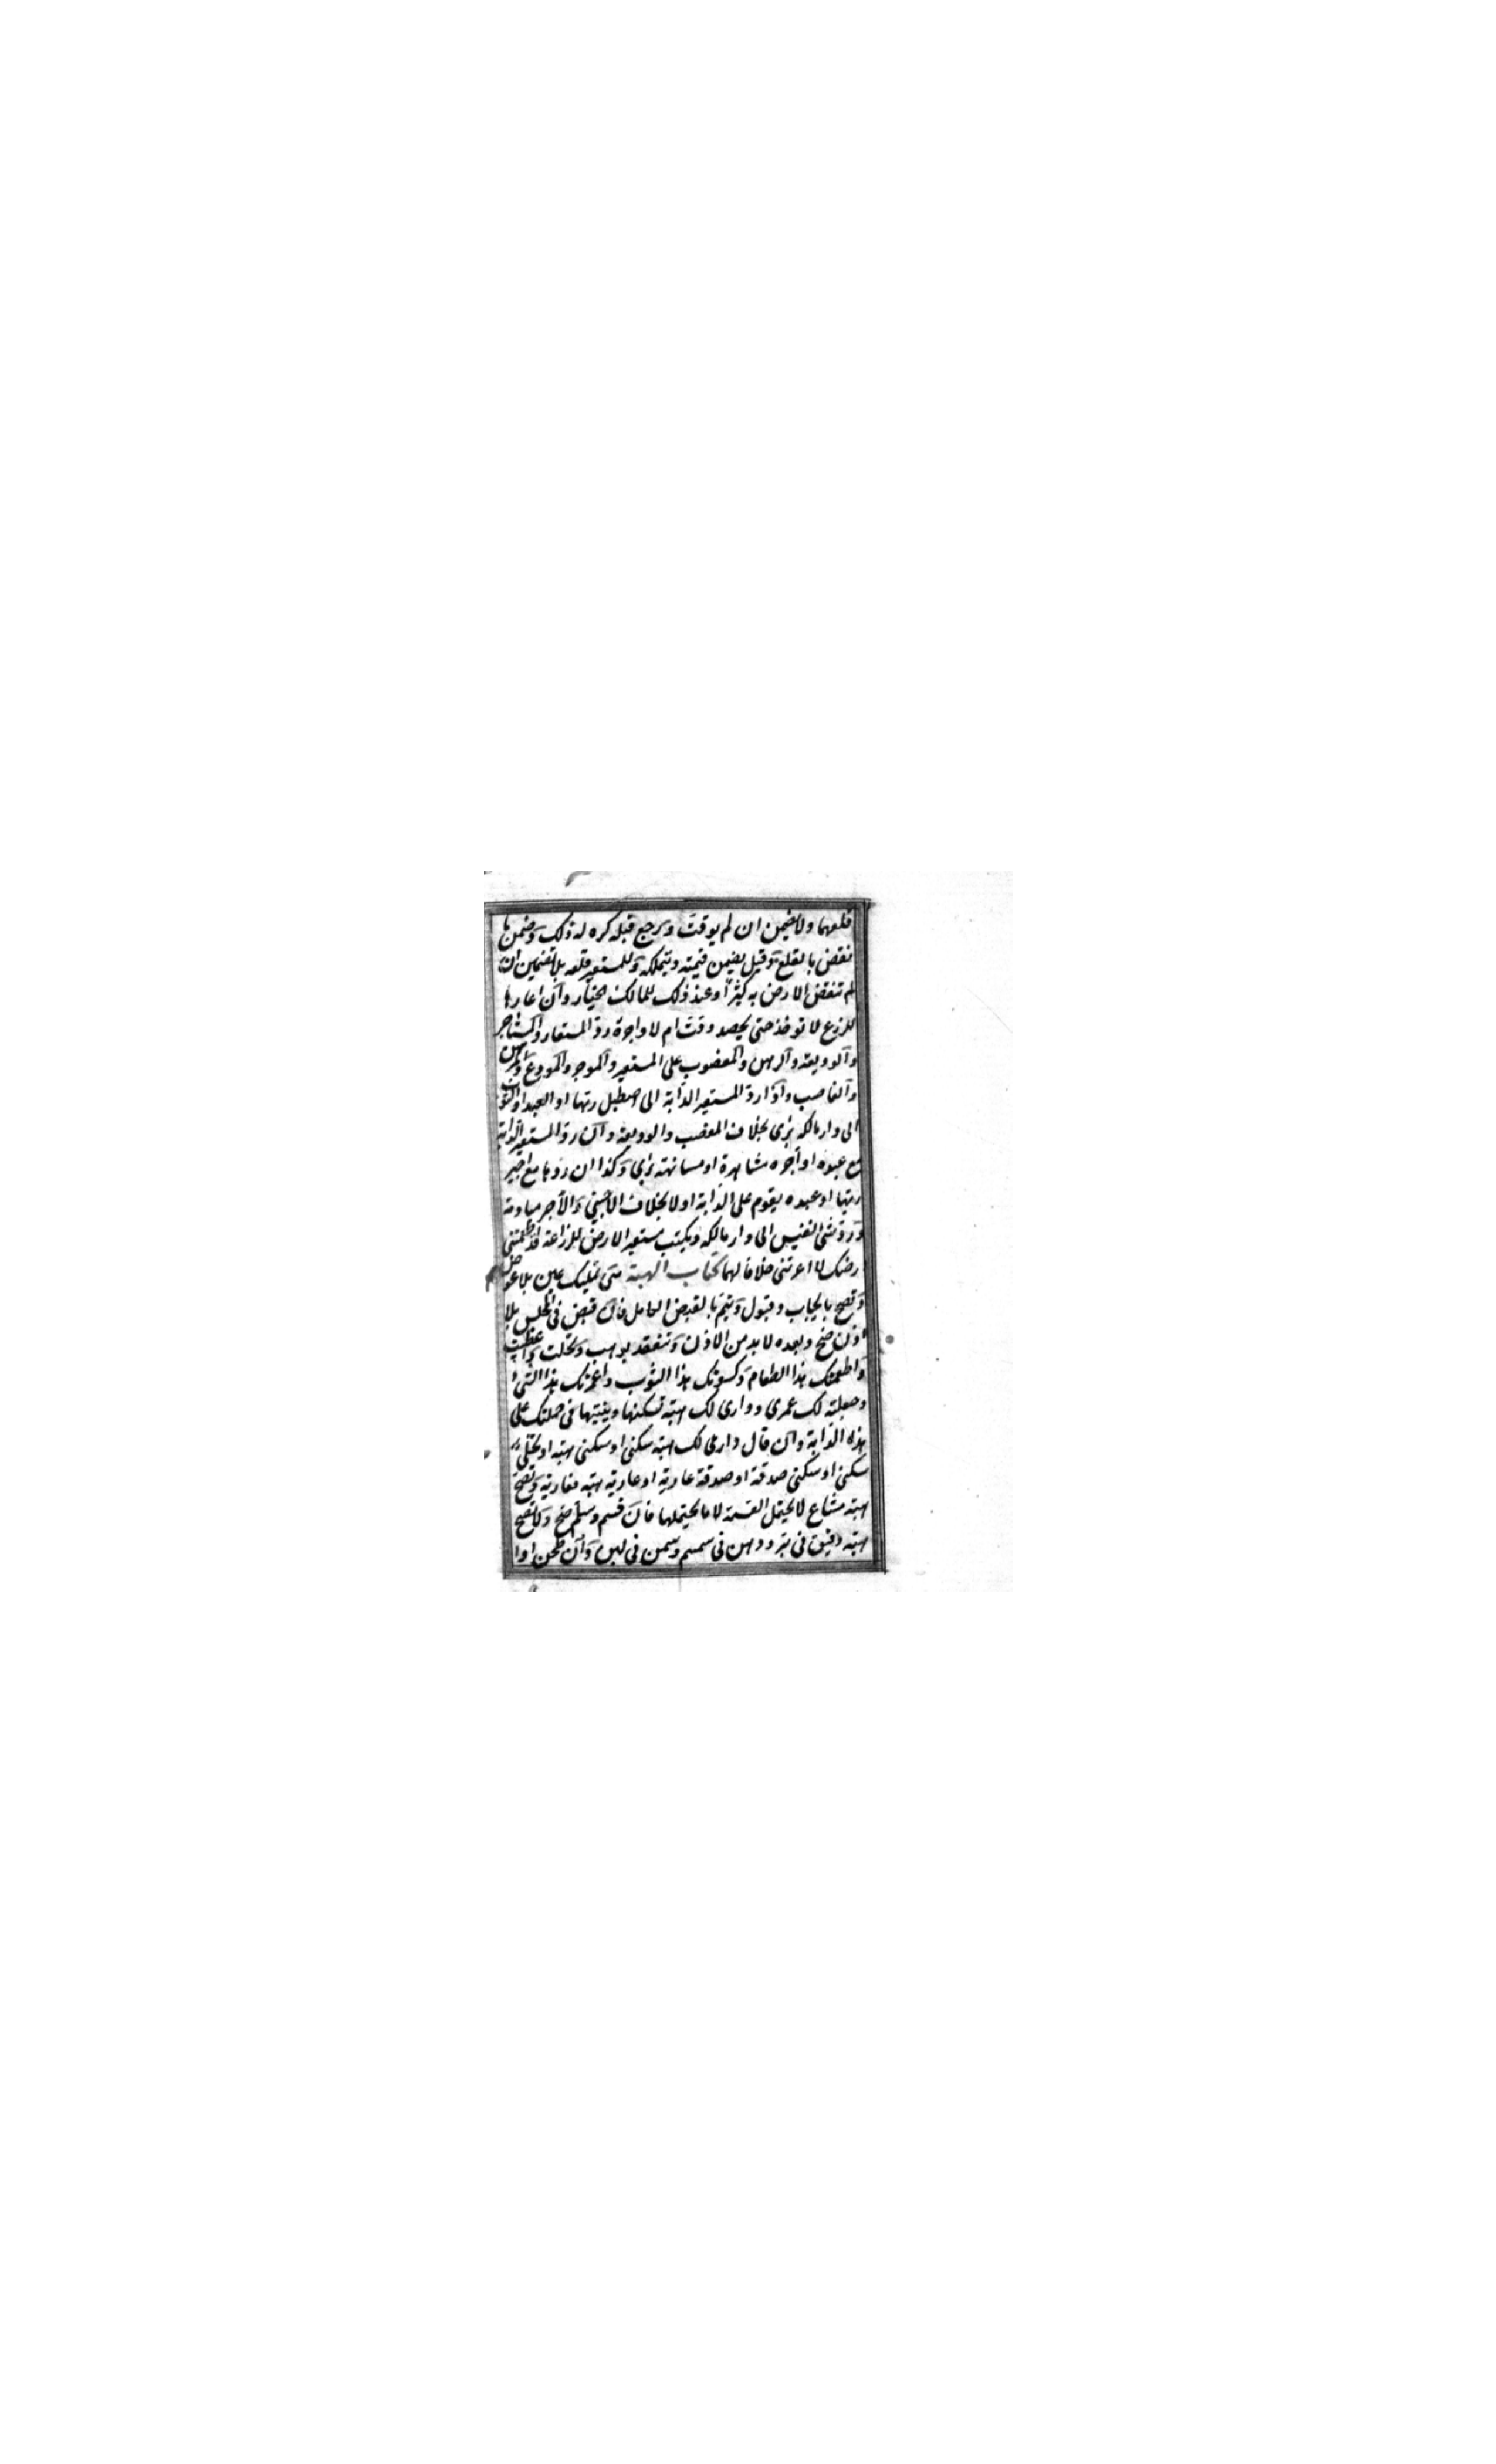 قلعهما ولا يضمن ان لم يوقت وبرجع قبله كره له ذلك وضمن ما
نقص بالقلع وقيل يضمن قيمته ويتملكه وللمستعير قلعه بلا تضمين ان
لم تنقض الارض به كثيرا وعند ذلك للمالك الخيار وان اعارها
للزرع لا تؤخذ حتى يحصد وقت ام لا واجرة رد المستعار والمستاجر
والوديعة والرهن والمغصوب على المستعير والموجر والمودع والمرتهن
والغاصب واذا رد المستعير الدابة الى اصطبل ربها او العبد او الثوب
الى دار مالكه برئ بخلاف المغصب والوديعة وان رد المستعير الدابة
مع عبده او أجره مشاهرة او مسانهة برئ وكذا ان ردها مع اجير
ربها او عبده يقوم على الدابة او لا بخلاف الاجنبي والأجر مياومة
ورد شئ نفيس الى دار مالكه ويكتب مستعير الارض للزراعة قد اطعمتني
ارضك لا اعرتني خلافا لهما كتاب الهبة هى تمليك عين بلا عوض
وتصح بايجاب وقبول وتتم بالقبض الكامل فان قبض فى المجلس بلا
اذن صح وبعده لا بد من الاذن وتنعقد بوهب ونحلت واعطيت
واطعمتك هذا الطعام وكسوتك هذا الثوب واعمرتك هذا الشئ
وجعلته لك عمرى ودارى لك هبة تسكنها وبنيتها فى حملتك على
هذه الدابة وان قال دارى لك هبة سكنى او سكنى هبة او نحلى
سكنى او سكنى صدقة او صدقة عارية او عارية هبة فعارية وتصح
هبة مشاع لا يحتمل القسمة لا ما يحتملها فان قسم وسلم صح ولا تصح
هبة دقيق فى بر ودهن فى سمسم وسمن فى لبن وان طحن او ا